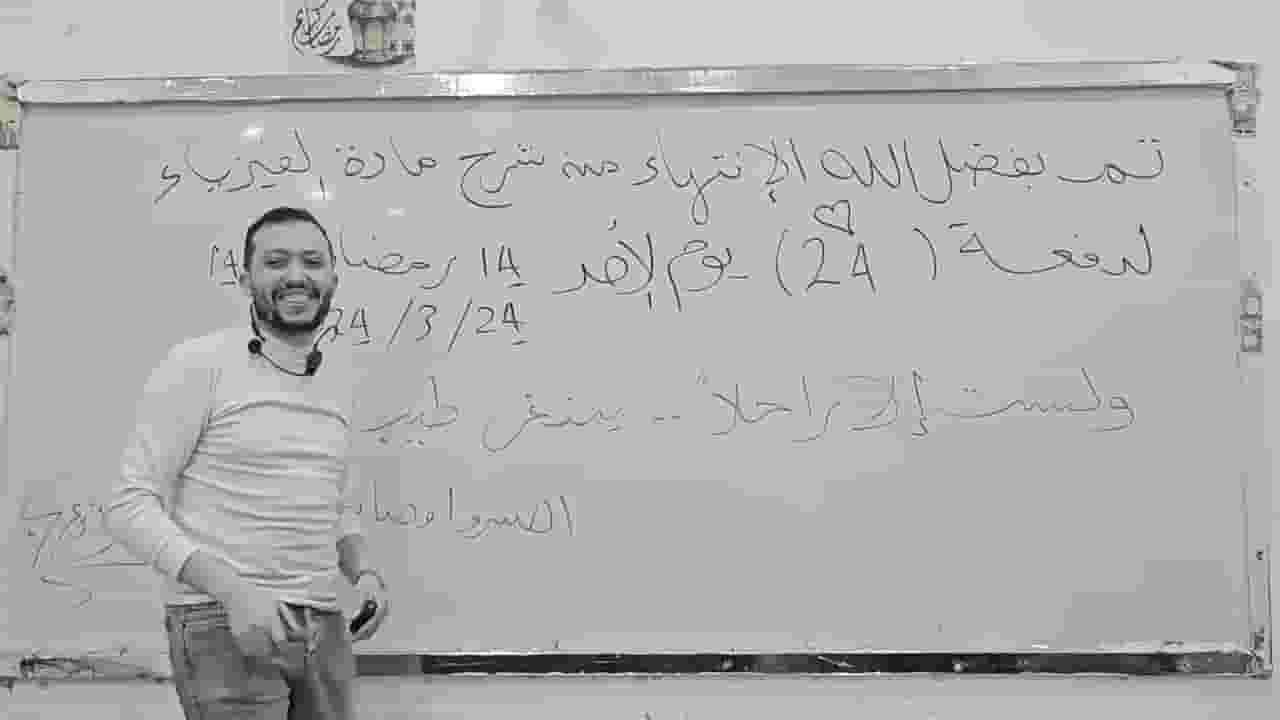 رمضان كريم
تم بفضل الله الإنتهاء من شرح مادة الفيزياء
لدفعة (24) يوم الأحد 14 رمضا 14
24/3/24
ولست إلا راحلاً .. يبتغي طيب